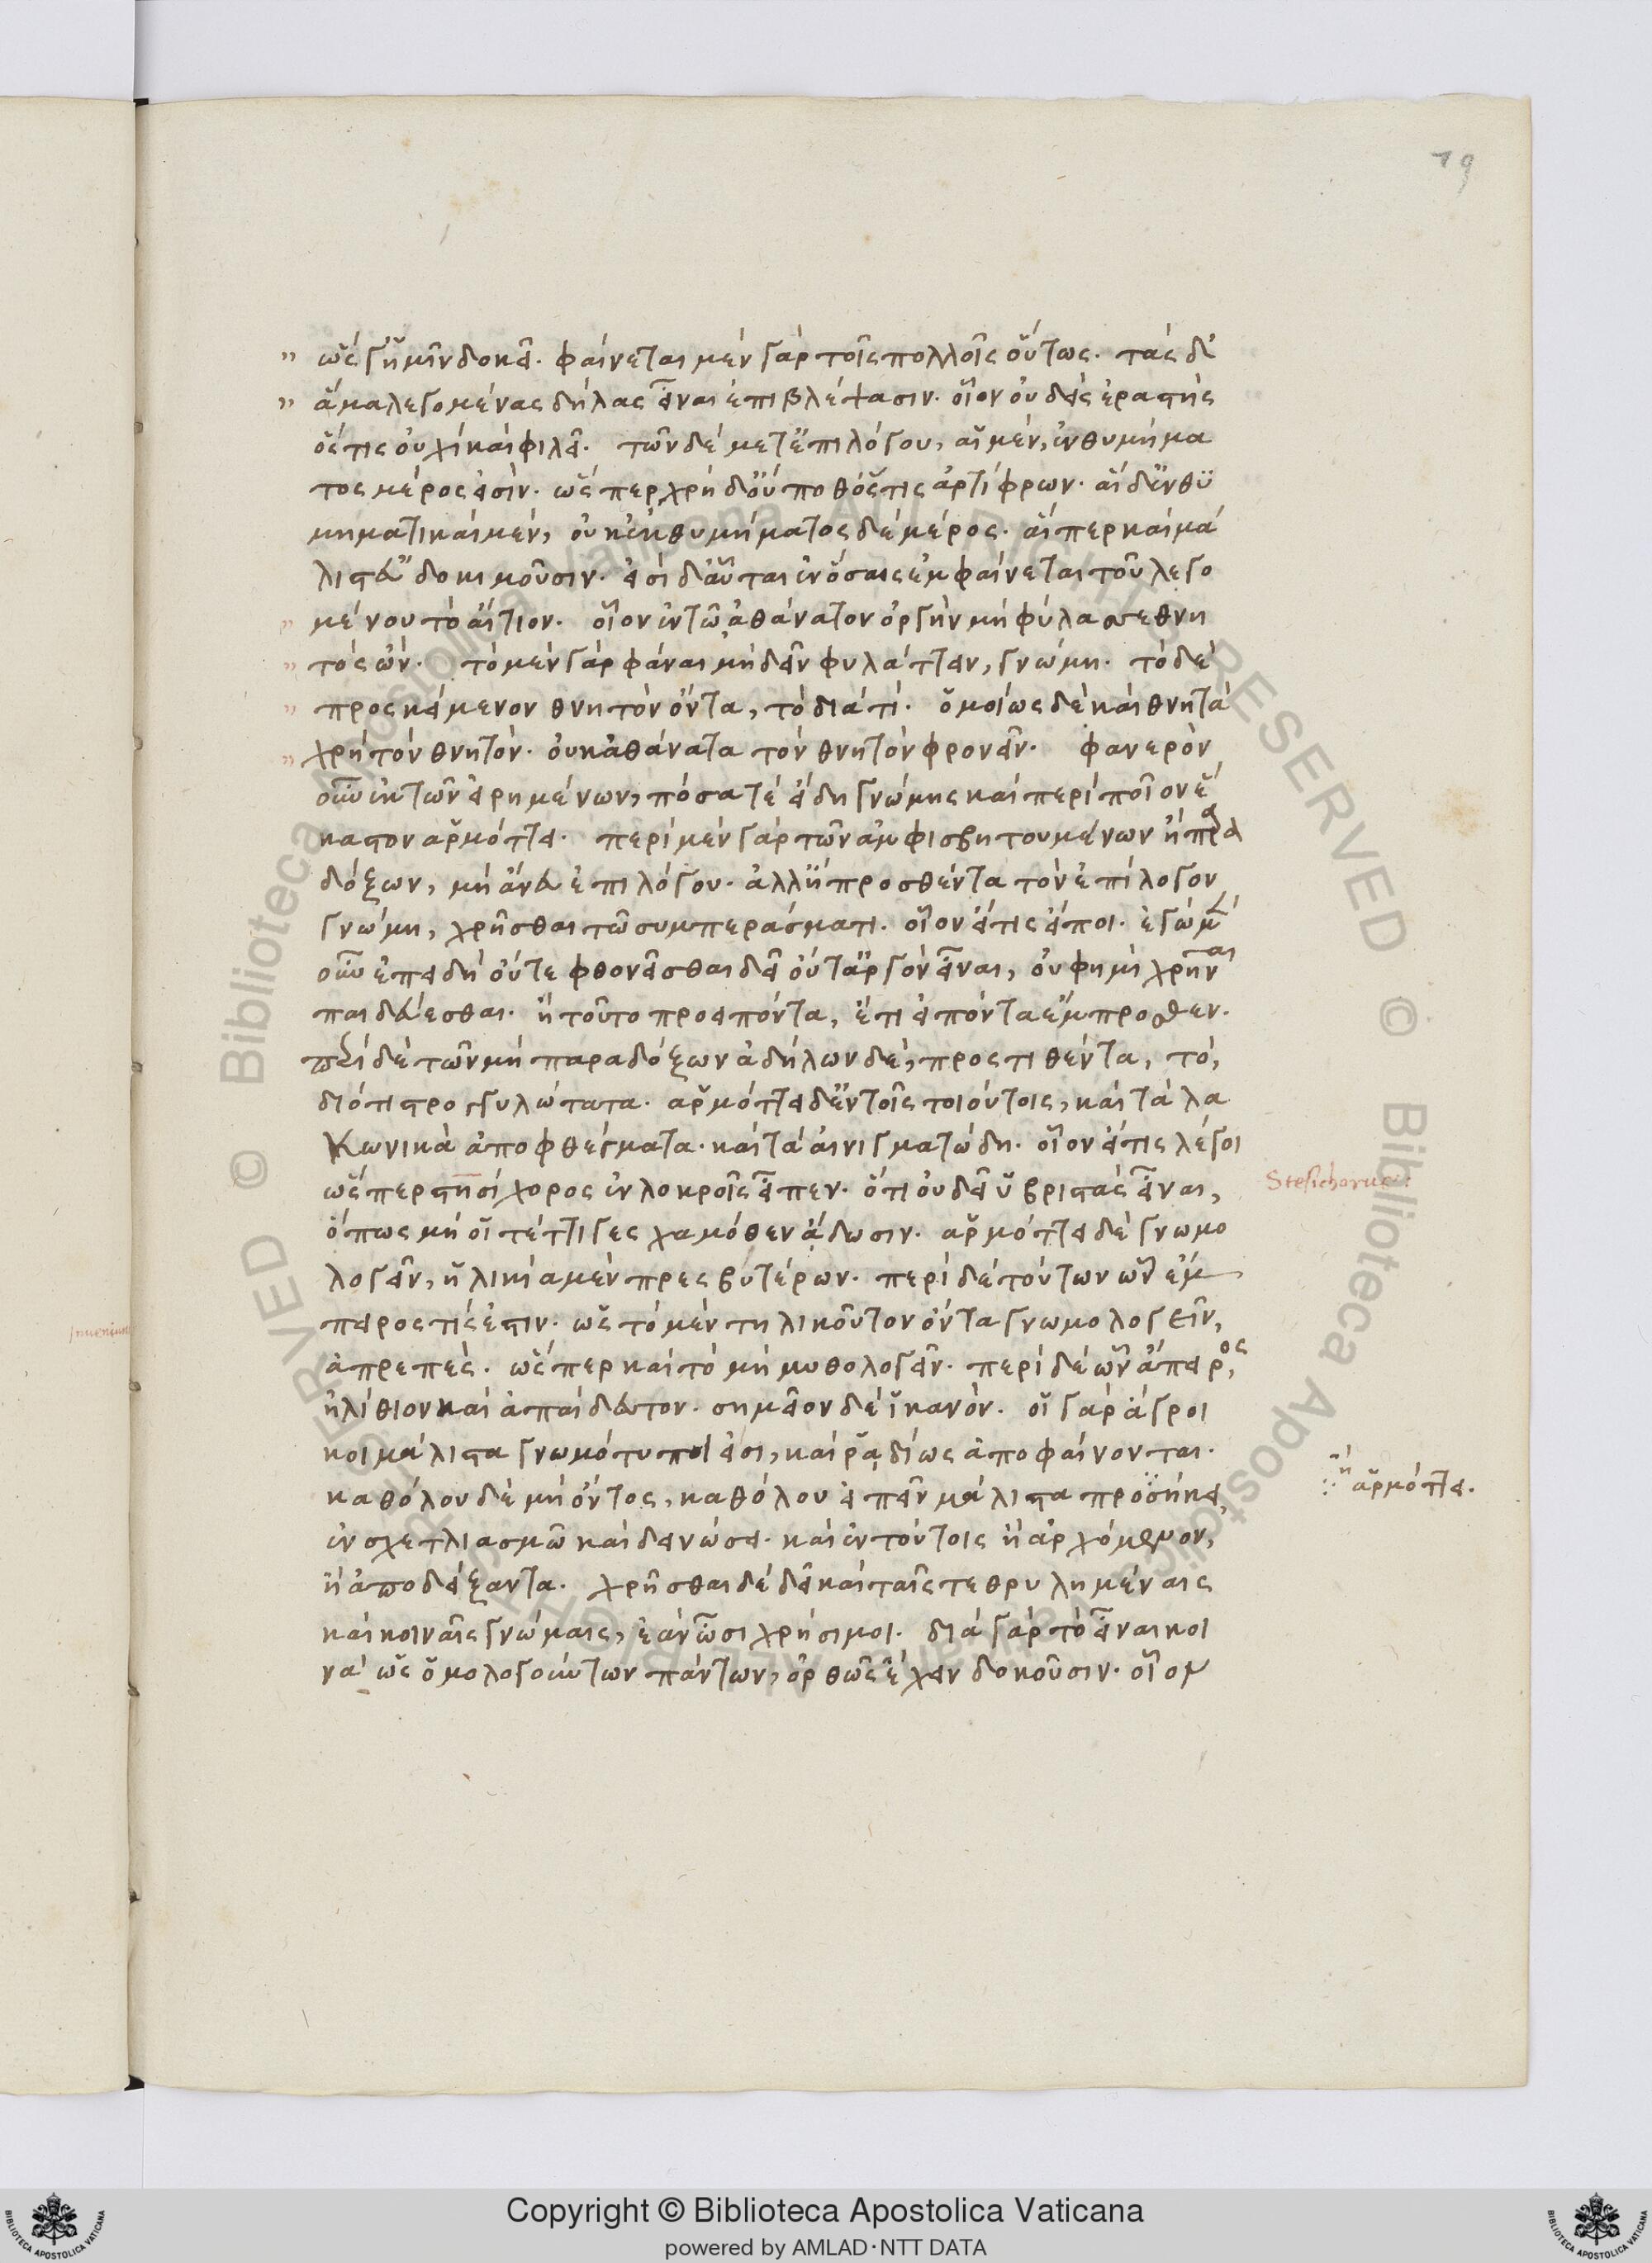 79
ὥς γ' ἡμῖν δοκεῖ. φαίνεται μὲν γὰρ τοῖς πολλοῖς οὕτως. τὰς δ'
ἅμα λεγομένας δήλας εἶναι ἐπιβλέψασιν. οἷον οὐδεὶς ἐραστὴς
ὅστις οὐχὶ καὶ φιλεῖ. τῶν δὲ μετ' ἐπιλόγου, αἱ μὲν, ἐνθυμήμα
τος μέρος εἰσίν. ὥσπερ, χρὴ δ' οὔ ποθ' ὅστις ἀρτίφρων. αἱ δ' ἐνθυ
μηματικαὶ μὲν, οὐκ ἐνθυμήματος δὲ μέρος. αἵπερ καὶ μά
λιστ' εὐδοκιμοῦσιν. εἰσὶ δ' αὗται ἐν ὅσαις ἐμφαίνεται τοῦ λεγο
μένου τὸ αἴτιον. οἷον ἐν τῶ, ἀθάνατον ὀργὴν μὴ φύλασσε θνη
τὸς ὤν. τὸ μὲν γὰρ φάναι μὴ δεῖν φυλάττειν, γνώμη. τὸ δὲ
προσκείμενον θνητὸν ὄντα, τὸ διὰ τί. ὁμοίως δὲ καὶ θνητὰ
χρὴ τὸν θνητὸν. οὐκ ἀθάνατα τὸν θνητὸν φρονεῖν. φανερὸν
οὖν ἐκ τῶν εἰρημένων, πόσα τὲ εἴδη γνώμης καὶ περὶ ποῖον ἕ
καστον ἁρμόττει. περὶ μὲν γὰρ τῶν ἀμφισβητουμένων ἢ παρα
δόξων, μὴ ἄνευ ἐπιλόγου. ἀλλ' ἢ προσθέντα τὸν ἐπίλογον
γνώμη, χρῆσθαι τῶ συμπεράσματι. οἷον εἴ τις εἴποι. ἐγὼ μὲν
οὖν ἐπειδὴ οὔτε φθονεῖσθαι δεῖ οὔτ' ἀργὸν εἶναι, οὔ φημι χρῆναι
παιδεύεσθαι. ἢ τοῦτο προειπόντα, ἔτι εἰπόντα ἔμπροσθεν.
περὶ δὲ τῶν μὴ παραδόξων ἀδήλων δὲ, προστιθέντα, τὸ,
διότι στρογγυλώτατα. ἁρμόττει δ' ἐν τοῖς τοιούτοις, καὶ τὰ λα
κωνικὰ ἀποφθέγματα. καὶ τὰ αἰνιγματώδη. οἷον εἴ τις λέγοι
ὥσπερ στησίχορος ἐν λοκροῖς εἶπεν. ὅτι οὐ δεῖ ὑβριστὰς εἶναι,
Stesichorus:
ὅπως μὴ οἱ τέττιγες χαμόθεν ᾄδωσιν. ἁρμόττει δὲ γνωμο
λογεῖν, ἡλικία μὲν πρεσβυτέρων. περὶ δὲ τούτων ὧν ἔμ
πειρος τίς ἐστιν. ὡς τὸ μὲν τηλικοῦτον ὄντα γνωμολογεῖν,
ἀπρεπὲς. ὥσπερ καὶ τὸ μὴ μυθολογεῖν. περὶ δὲ ὧν ἄπειρος,
ἠλίθιον καὶ ἀπαίδευτον. σημεῖον δὲ ἱκανόν. οἱ γὰρ ἄγροι
κοι μάλιστα γνωμότυποι εἰσι, καὶ ῥᾳδίως ἀποφαίνονται.
καθόλου δὲ μὴ ὄντος, καθόλου εἰπεῖν μάλιστα προσήκει
ἢ ἁρμόττει.
ἐν σχετλιασμῶ καὶ δεινώσει. καὶ ἐν τούτοις ἢ ἀρχόμενον,
ἢ ἀποδείξαντα. χρῆσθαι δὲ δεῖ καὶ ταῖς τεθρυλημέναις
καὶ κοιναῖς γνώμαις, ἐὰν ὦσι χρήσιμοι. διὰ γὰρ τὸ εἶναι κοι
ναὶ ὡς ὁμολογούντων πάντων, ὀρθῶς ἔχειν δοκοῦσιν. οἷον
Copyright © Biblioteca Apostolica Vaticana
powered by AMLAD·NTT DATA